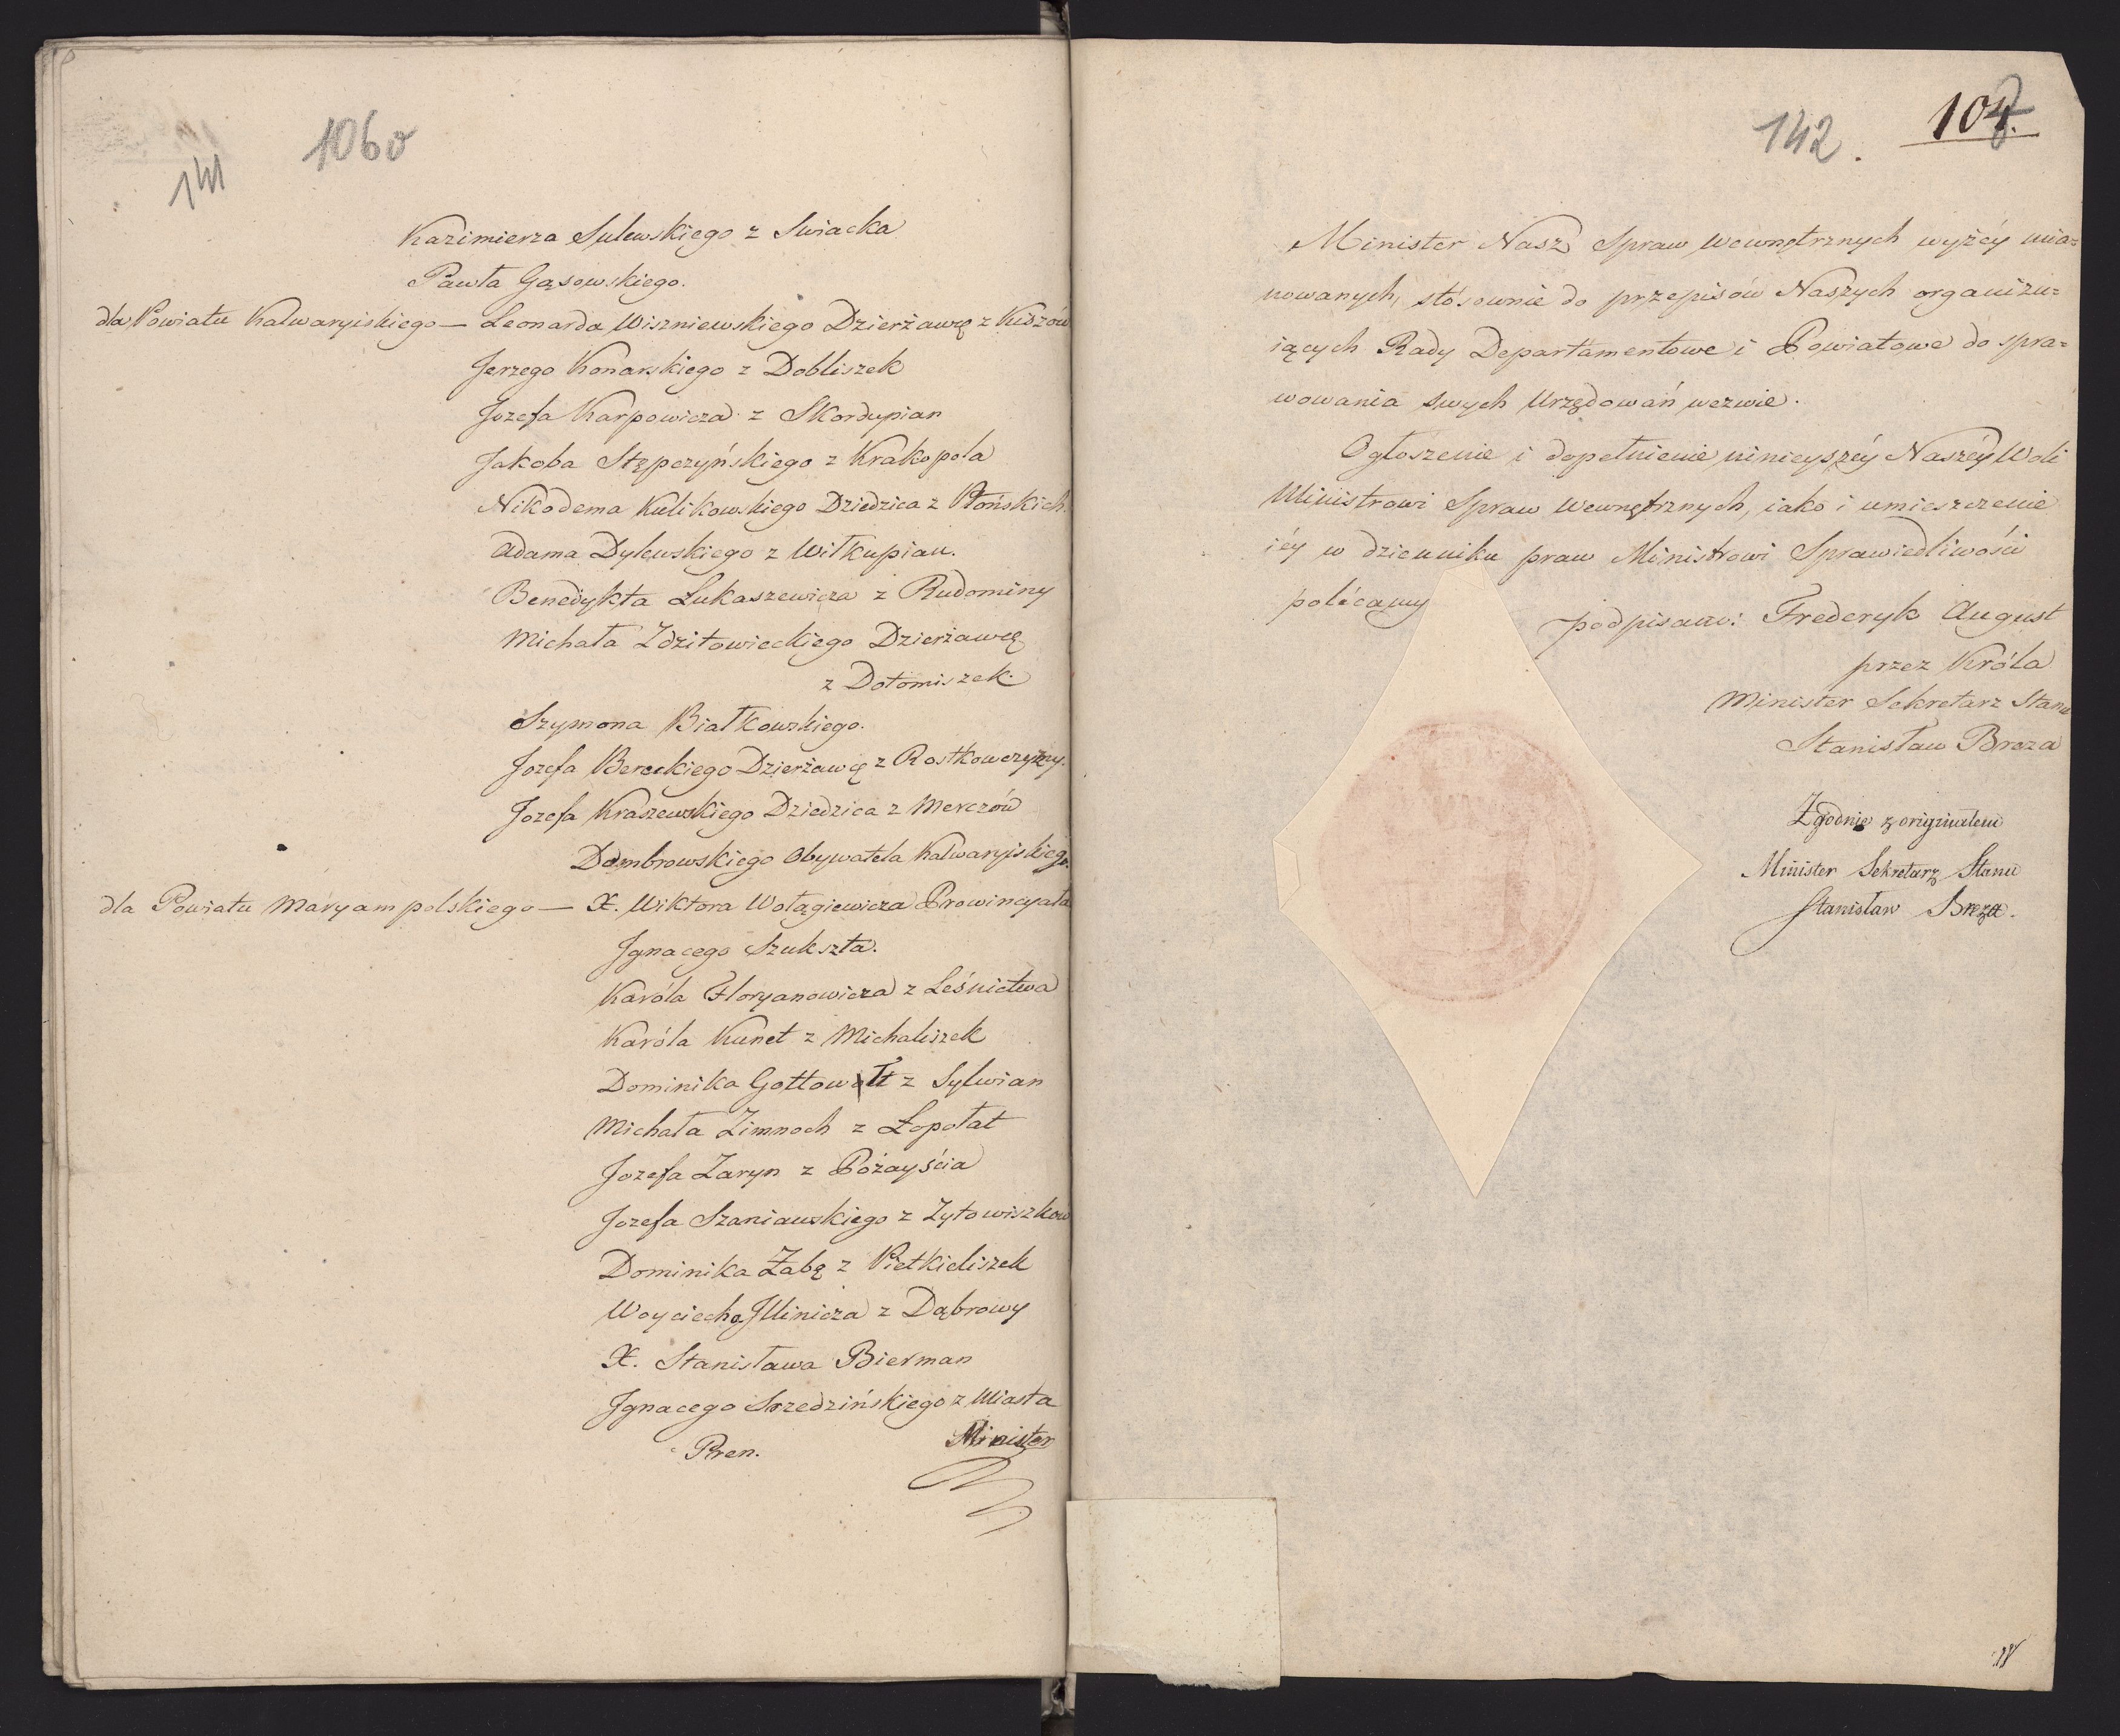 1060
141
Kazimierza Sulewskiego z Swiacka
Pawła Gąsowskiego.
dla Powiatu Kalwaryiskiego — Leonarda Wiszniewskiego Dzierżawcę z Kiszów
Jerzego Konarskiego z Dobliszek
Jozefa Karpowicza z Skordupian
Jakoba Stępczyńskiego z Krakopola
Nikodema Kulikowskiego Dziedzica z Płońskich.
Adama Dylewskiego z Wiłkupian.
Benedykta Łukaszewicza z Rudominy
Michała Zdzitowieckiego Dzierżawcę
z Dołomiszek.
Szymona Białkowskiego.
Jozefa Bereckiego Dzierżawcę z Rostkowczyzny.
Jozefa Kraszewskiego Dziedzica z Merczów
Dombrowskiego Obywatela Kalwaryiskiego.
dla Powiatu Maryampolskiego — X. Wiktora Wołągiewicza Prowincyała
Jgnacego Szukszta.
Karóla Floryanowicza z Leśnictwa
Karóla Kunet z Michaliszek
Dominika Gottowtt z Sylwian
Michała Zimnoch z Łopołat
Jozefa Zaryn z Pożayścia
Jozefa Szaniawskiego z Zytowiszkow
Dominika Żabę z Pietkieliszek
Woyciecha Jllinicza z Dąbrowy
X. Stanisława Bierman
Jgnacego Srzedzińskiego z Miasta
Pren.
Minister
142. 107.
Minister Nasz Spraw Wewnętrznych wyżéy mia=
nowanych, stósownie do przepisów Naszych organizu=
iących Rady Departamentowe i Powiatowe do spra=
wowania swych Urzędowań wezwie.
Ogłoszenie i dopełnienie ninieyszéy Naszéy Woli
Ministrowi Spraw Wewnętrznych, iako i umieszczenie
iéy w dzienniku praw Ministrowi Sprawiedliwości
polécamy
podpisano: Frederyk August
przez Króla
Minister Sekretarz Stanu
Stanisław Breza
Zgodnie z originałem
Minister Sekretarz Stanu
Stanisław Breza.